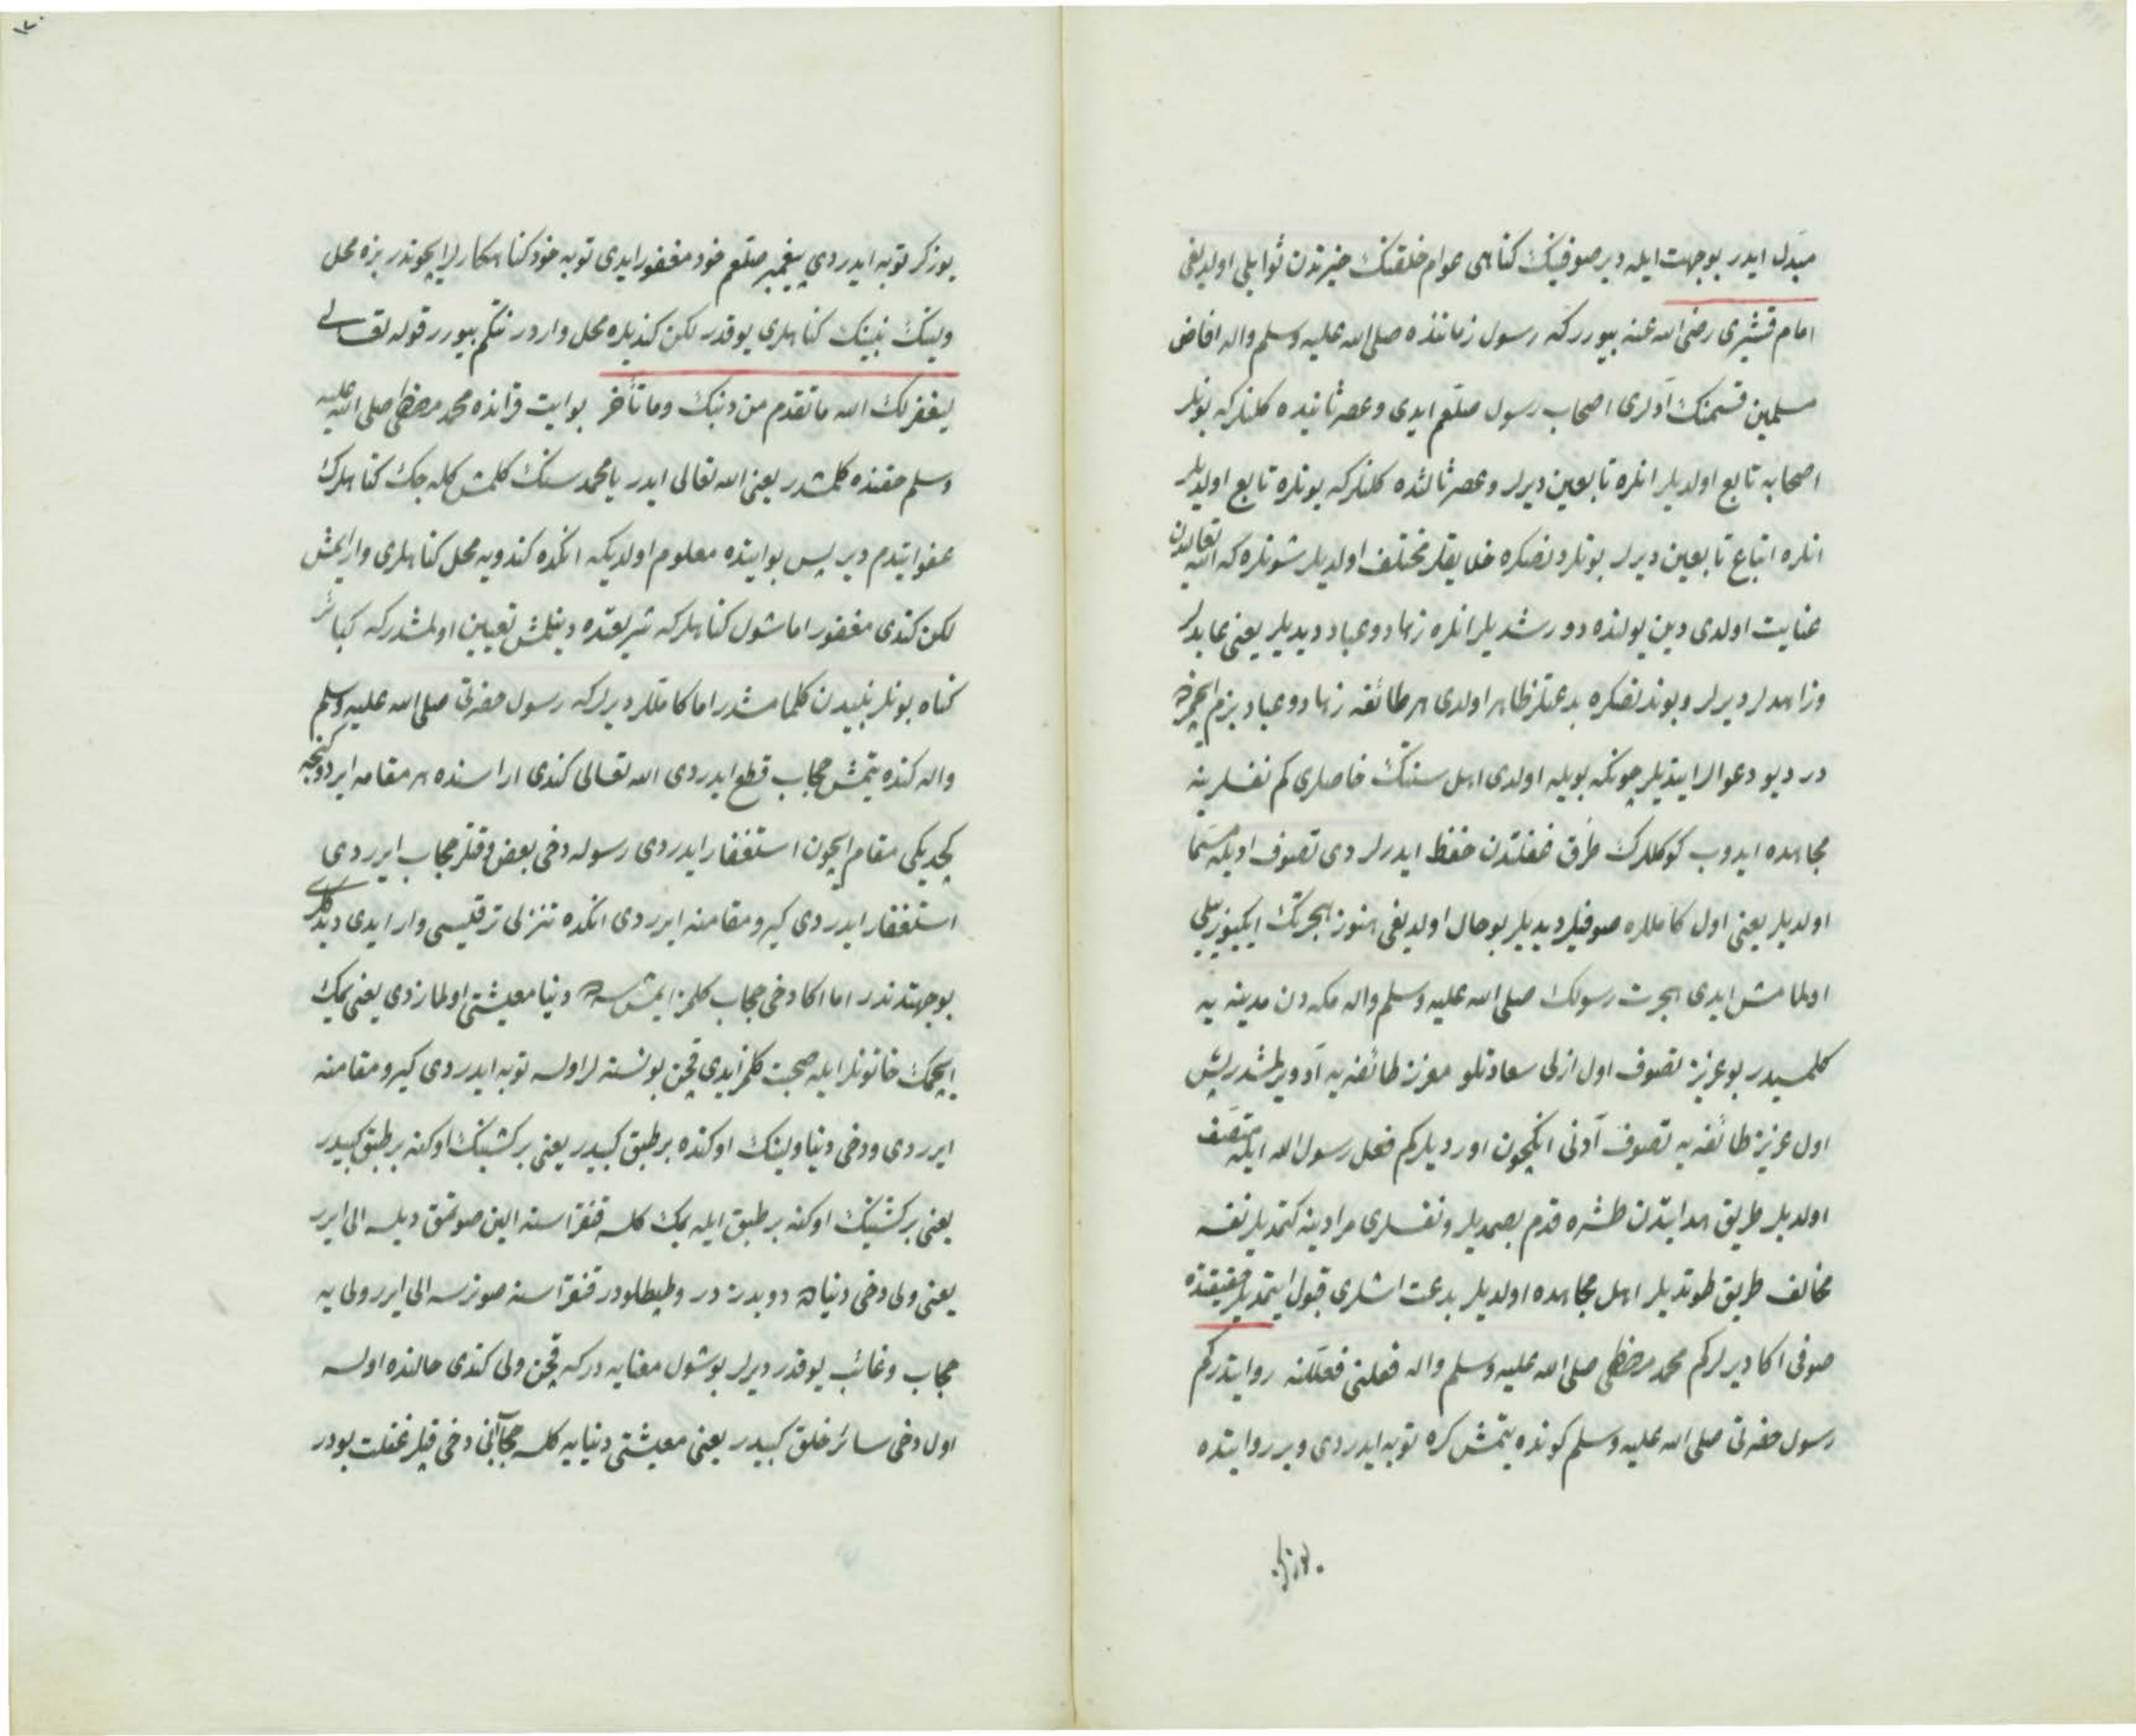 مبدل ايدر بوجهت ايله دير صوفينك كناهى عوام خلقنك خيرندن ثوابلى اولديغى
امام قشيرى رضى الله عنه بيوررکه رسول زماننده صلى الله عليه وسلم واله افاض
مسلمين قسمنك آدلرى اصحاب رسول صلعم ايدى وعصر ثانيده كلنلركه بونلر
اصحابه تابع اولديلر انلره تابعين ديرلر وعصر ثالثده كلنلركه بونلره تابع اولديلر
انلره اتباع تابعين ديرلر بونلردنصكره خلايقلر مختلف اولديلر شونلره كه الله تعاليدن
عنايت اولدى دين يولنده دورشديلر انلره زهاد وعباد ديديلر يعنى عابدلر
وزاهدلر ديرلر وبوندنصكره بدعتلر ظاهر اولدى هر طائفه زهاد وعباد بزم ايچمزده
در ديو دعوالر ايتديلر چونكه بويله اولدى اهل سنتك خاصلرى كم نفسلرينه
مجاهده ايدوب كوكللرك طرق غفلتدن حفظ ايدرلر دى تصوف اديله مسما
اولديلر يعنى اول كامللره صوفيلر ديديلر بوحال اولديغى هنوز هجرتك ايكيوز ييلى
اولمامش ايدى هجرت رسولك صلى الله عليه وسلم واله مكه دن مدينه يه
كلمسيدر بو عزيز تصوف اول ازلى سعادتلو معزز طائفه يه آد ويرلمشدر پس
اول عزيز طائفه يه تصوف آدنى انكچون اورديلركم فعل رسول الله ايله متصف
اولديلر طريق هدايتدن طشره قدم بصمديلر ونفسلرى مرادينه كتمديلر نفسه
مخالف طريق طوتديلر اهل مجاهده اولديلر بدعت اشلرى قبول ايتمديلر حقيقتده
صوفى اكا ديرلركم محمد مصطفى صلى الله عليه وسلم واله فعلنى فعللنه روايتدركم
رسول حضرتى صلى الله عليه وسلم كونده يتمش كره توبه ايدردى وبر روايتده
يوزكر
يوزكر توبه ايدردى پيغمبر صلعم خود مغفور ايدى توبه خود كناهكارلر ايچوندر بزه محل
ولينك نبينك كناهلرى يوقدر لكن كنديلره محل واردر نتكم بيورر قوله تعالى
ليغفر لك الله ما تقدم من ذنبك وما تأخر بو ايت قرآنده محمد مصطفى صلى الله عليه
وسلم حقنده كلمشدر يعنى الله تعالى ايدر يا محمد سنك كلمش كله جك كناهلرك
عفو ايتدم دير پس بو ايتده معلوم اولديكه انكده كندويه محل كناهلرى وارايمش
لكن كندى مغفور اما شول كناهلركه شريعتده دينلمش تعيين اولمشدركه كبائر
كناه بونلر نبيدن كلمامشدر اما كامللر ديرلركه رسول حضرتى صلى الله عليه وسلم
واله كنده يتمش حجاب قطع ايدردى الله تعالى كندى اراسنده هر مقامه ايردوكنجه
كچديكى مقام ايچون استغفار ايدردى رسوله دخى بعض وقتلر حجاب ايرردى
استغفار ايدردى كيرو مقامنه ايرردى انكده تنزلى ترقيسى وار ايدى ديدكلرى
بوجهتدندر اما اكا دخى حجاب كلمز ايمش دنيا معيشتى اولمازدى يعنى يمك
ايچمك خاتونلر ايله صحبت كلمز ايدى قچن بو نسنه لر اولسه توبه ايدردى كيرو مقامنه
ايرردى ودخى دنيا ولينك اوكنده بر طبق كبيدر يعنى بر كشينك اوكنه بر طبق كبيدر
يعنى بر كشينك اوكنه بر طبق ايله يمك كلسه قنغى‌سنه الين صونمق ديلسه الى ايرر
يعنى ولى دخى دنياده دوبدز در وطبطلودر قنغى‌سنه صونرسه الى ايرر ولى يه
حجاب وغائب يوقدر ديرلر بو شول معنايه دركه قچن ولى كندى حالنده اولسه
اول دخى سائر خلق كبيدر يعنى معيشتى دنيايه كلسه حجابنى دخى قيلر غفلت بودر